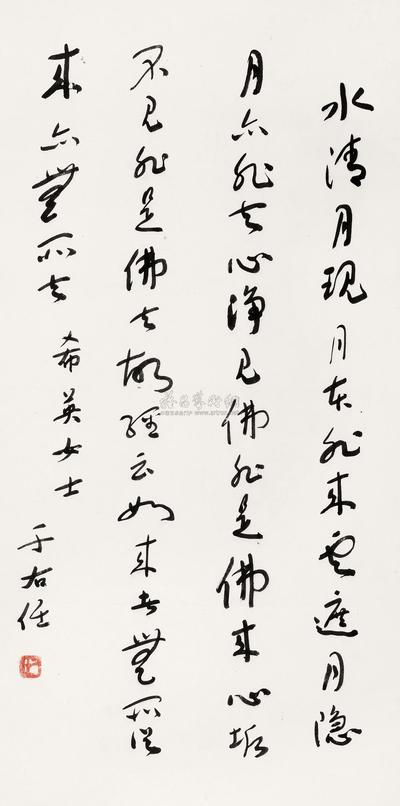 水清月現月本非來雲遮月隱
月亦非去心淨見佛非是佛來心垢
不見非是佛去故經云如來者無所從
來亦無所去 希英女士
于右任